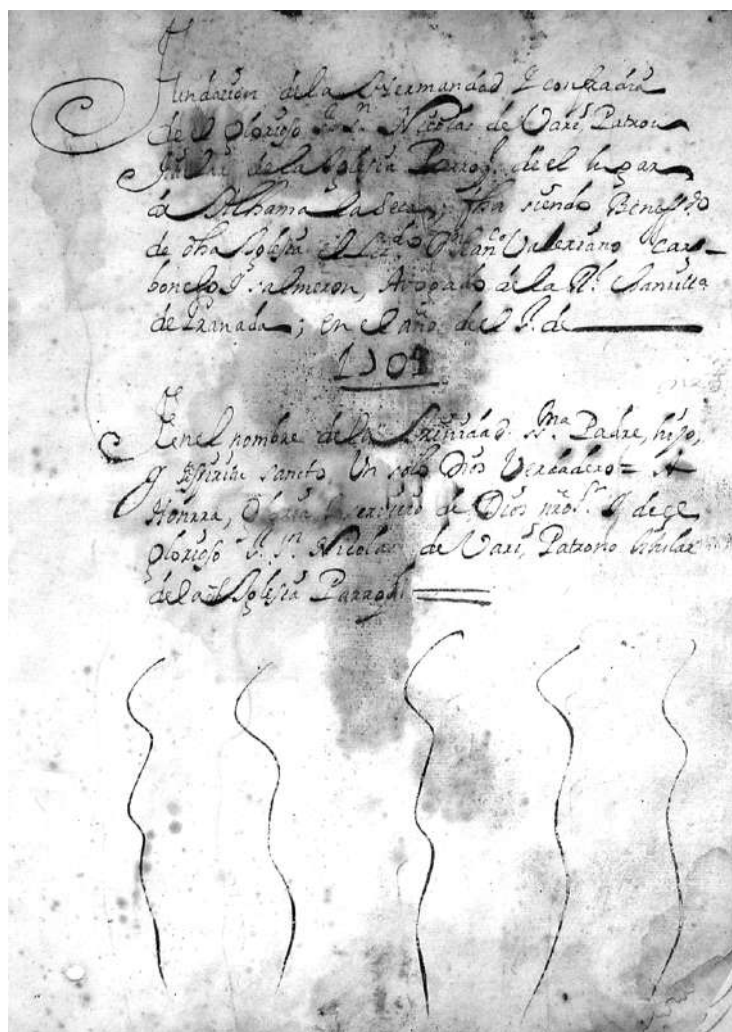 Fundacion de la Hermandad y confradia
de el Glorioso Sr. Sn. Nicolas de Vari, Patron
de la Yglesia Parroql. de el lugar
de Alhama la Seca; fha siendo Beneffdo
de dha Yglesia el Lcdo. Dn. Franco. Valeriano Car-
bonel y Salmeron, Avogado de la Rl. Chanylla
de Granada; en el año de el Sr. de
En el nombre de la Trinidad SSma. Padre, hijo,
y Espiritu sancto, Un solo Dios Verdadero = A
Honrra, Gloria y servicio de Dios nro. Sr. y de el
Glorioso Sr. Sn. Nicolas de Vari, Patrono titular
de la dha Yglesia Parroql.